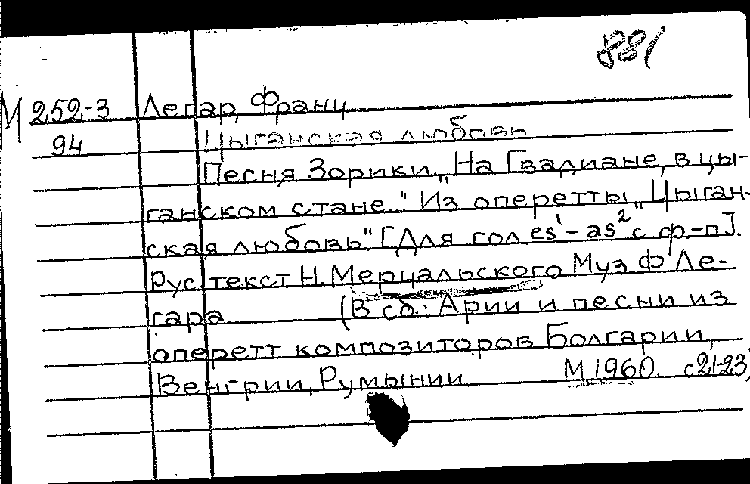 881
М 252-3 Легар, Франц
94 Цыганская любовь
Песня Зорики „На Гвадиане, в цы-
ганском стане..." Из оперетты „Цыган-
ская любовь". [Для гол es¹-as² с ф-п].
Рус текст Н. Мерцальского Муз Ф Ле-
гара (В сб.: Арии и песни из
оперетт композиторов Болгарии,
Венгрии, Румынии М 1960. с 21-23)